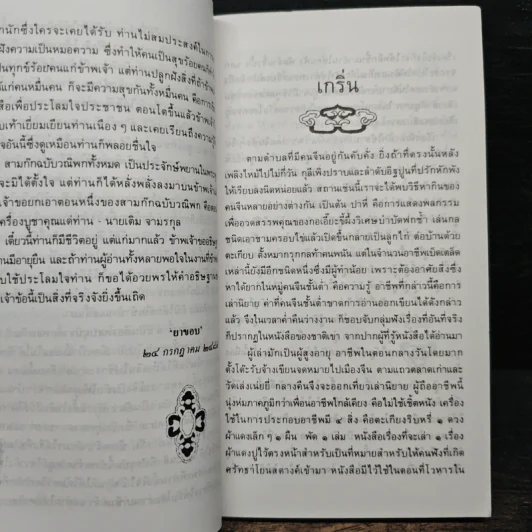 นักซึ่งใครจะเคยได้รับ ท่านไม่สมประสงค์ในการ
ฝังความเป็นหมอความ ซึ่งทำให้คนเป็นสุขร้อยคน
เป็นทุกข์ร้อยคนแก่ข้าพเจ้า แต่ท่านปลูกฝังสิ่งที่ข้าพเจ้า
แก่คนหมื่นคน ก็จะมีความสุขกันทั้งหมื่นคน คือการ
สือเพื่อประโลมใจประชาชน ตอนโตขึ้นแล้วข้าพเจ้า
บเท้าเยี่ยมเยียนท่านเนือง ๆ และเคยเรียนถึงความรู้
อันนี้ซึ่งดูเหมือนท่านก็พลอยชื่นใจ
สามก๊กฉบับวณิพกทั้งหมด เป็นประจักษ์พยานใน
จะมิได้ตั้งใจ แต่ท่านก็ได้หลั่งพลังลงมาบนข้าพเจ้า
เจ้าขอยกเอาตอนหนึ่งของสามก๊กฉบับวณิพก
เครื่องบูชาคุณแด่ท่าน - นายเติม จามรกุล
เดี๋ยวนี้ท่านก็มีชีวิตอยู่ แต่แก่มากแล้ว ข้าพเจ้าขออธิษฐาน
มีอายุยืน และถ้าท่านผู้อ่านทั้งหลายพอใจในงานที่ข้าพเจ้า
บใช้ประโลมใจท่าน ก็ขอได้อวยพรให้คำอธิษฐาน
เจ้าข้อนี้เป็นสิ่งที่จริงจังยิ่งขึ้นเถิด
'ยาขอบ'
๒๔ กรกฎาคม
เกริ่น
ตามตำบลที่มีคนจีนอยู่กันคับคั่ง ยิ่งถ้าที่ตรงนั้นหลัง
เพลิงใหม้ไปไม่กี่วัน กุลีเพิงปราบและลำดับอิฐปูนที่ปรักหักพัง
ให้เรียบลงนิดหน่อยแล้ว สถานเช่นนี้เราจะได้พบวิธีหากินของ
คนจีนหลายอย่างต่างกัน เป็นต้น ปาหี่ คือการแสดงพลกรรม
เพื่ออวดสรรพคุณของกอเอี๊ยะขี้ผึ้งวิเศษบำบัดฟกช้ำ เล่นกล
ชนิดเอาชามครอบไข่แล้วเปิดขึ้นกลายเป็นลูกไก่ ต่อบ้านด้วย
ตะเกียบ ตั้งหมากรุกกลท้าคนพนัน แต่ในจำนวนอาชีพเบ็ดเตล็ด
เหล่านี้ยังมีอีกชนิดหนึ่งซึ่งมีผู้ทำน้อย เพราะต้องอาศัยสิ่งซึ่ง
หาได้ยากในหมู่คนจีนชั้นต่ำ คือความรู้ อาชีพที่กล่าวนี้คือการ
เล่านิยาย ค่าที่คนจีนชั้นต่ำขาดการอ่านออกเขียนได้ดังกล่าว
แล้ว จึงในเวลาค่ำคืนว่างงาน ก็ชอบจับกลุ่มฟังเรื่องที่อันที่จริง
ก็ปรากฏในหนังสือของชาติเขา จากปากผู้ที่รู้หนังสือได้อ่านมา
ผู้เล่ามักเป็นผู้สูงอายุ อาชีพในตอนกลางวันโดยมาก
ตั้งโต๊ะรับจ้างเขียนจดหมายไปเมืองจีน ตามแถวตลาดเก่าและ
วัดเล่งเน่ยยี่ กลางคืนจึงจะออกเที่ยวเล่านิยาย ผู้ถืออาชีพนี้
นุ่งห่มภาคภูมิกว่าเพื่อนอาชีพใกล้เคียง คือไม่ใช้เชิ้ตหนัง เครื่อง
ใช้ในการประกอบอาชีพมี ๔ สิ่ง คือตะเกียงริบหรี่ ๑ ดวง
ผ้าแดงเล็ก ๆ ๑ ผืน พัด ๑ เล่ม หนังสือเรื่องที่จะเล่า ๑ เรื่อง
ผ้าแดงปูไว้ตรงหน้าสำหรับเป็นที่หมายสำหรับให้คนฟังที่เกิด
ศรัทธาโยนสตางค์เข้ามา หนังสือมีไว้ใช้ในตอนที่โวหารใน